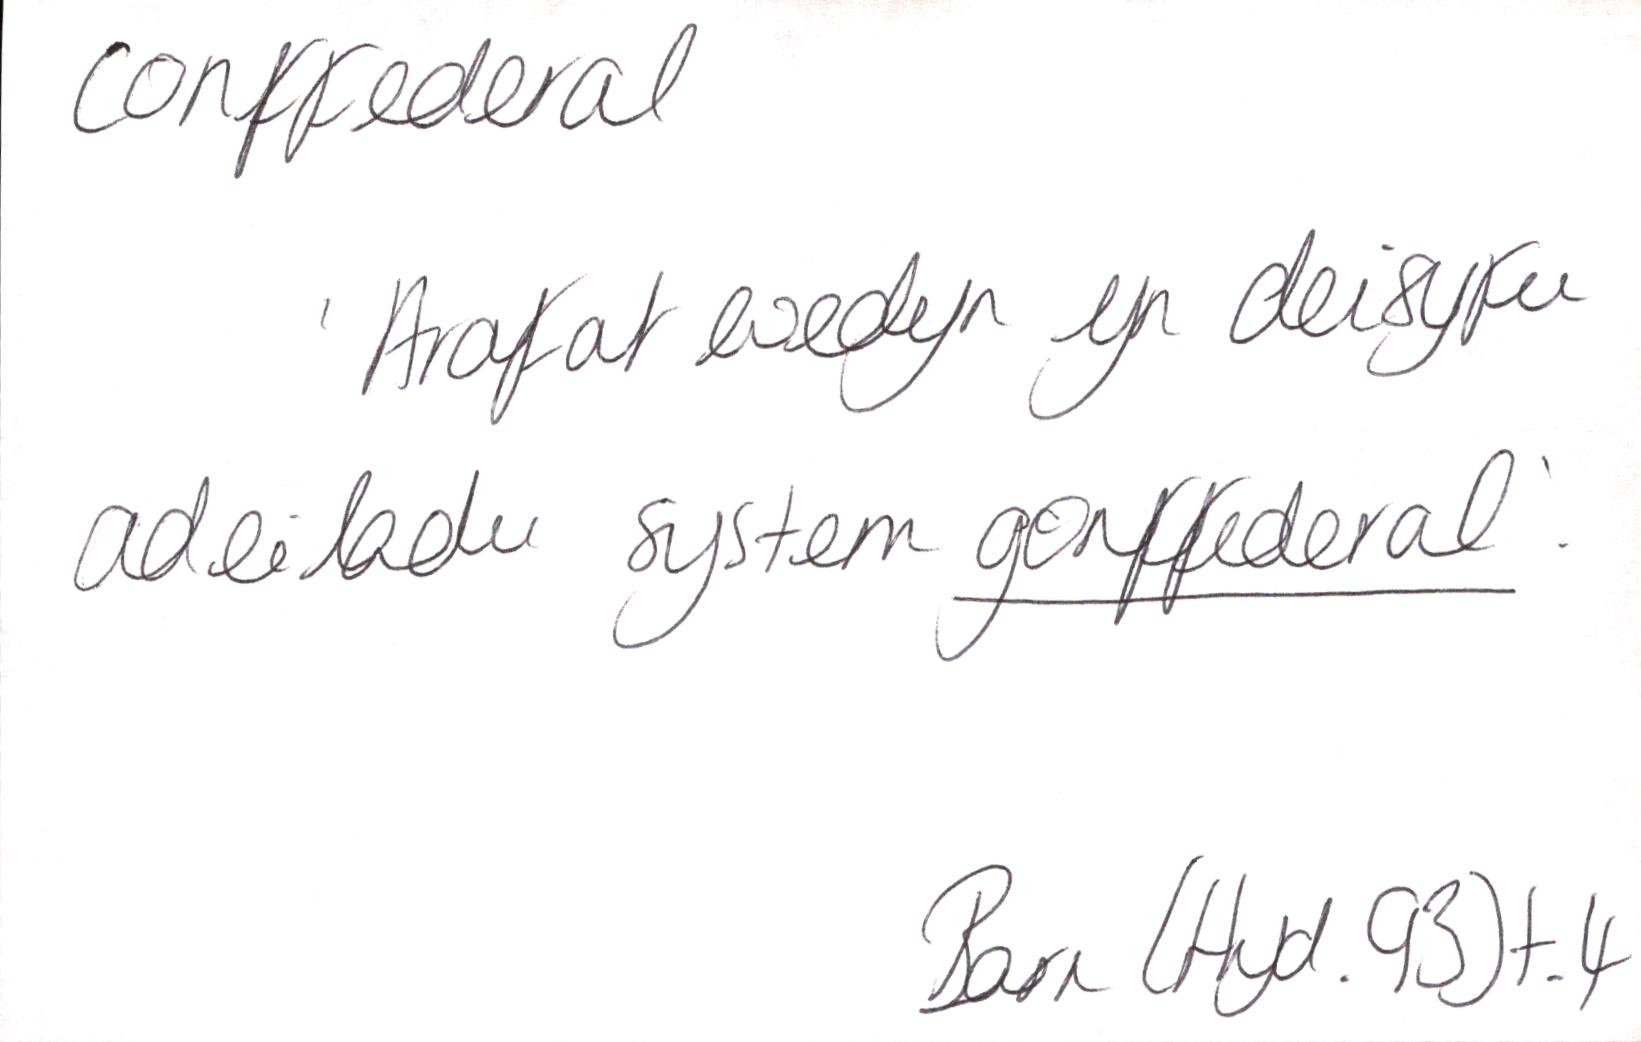 conffederal
'Arafat wedyn yn deisyfu
adeiladu system gonffederal'.
Barn (Hyd. 93) t. 4